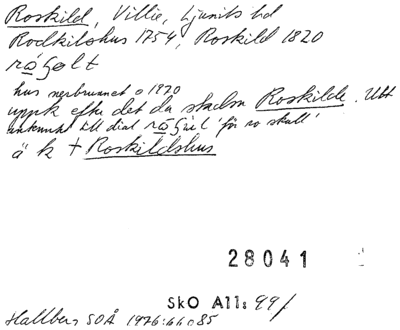 Roskild, Villie, Ljunits hd
Rodkilshus 1754, Roskild 1820
rågelt
hus nerbrunnet o 1920
uppk efter det da staden Roskilde. Utt
till dial rågel 'för ro skull'
ä k + Roskildshus
28041
SkO All: 99/
Hallberg SOÅ 1976:66 o 85